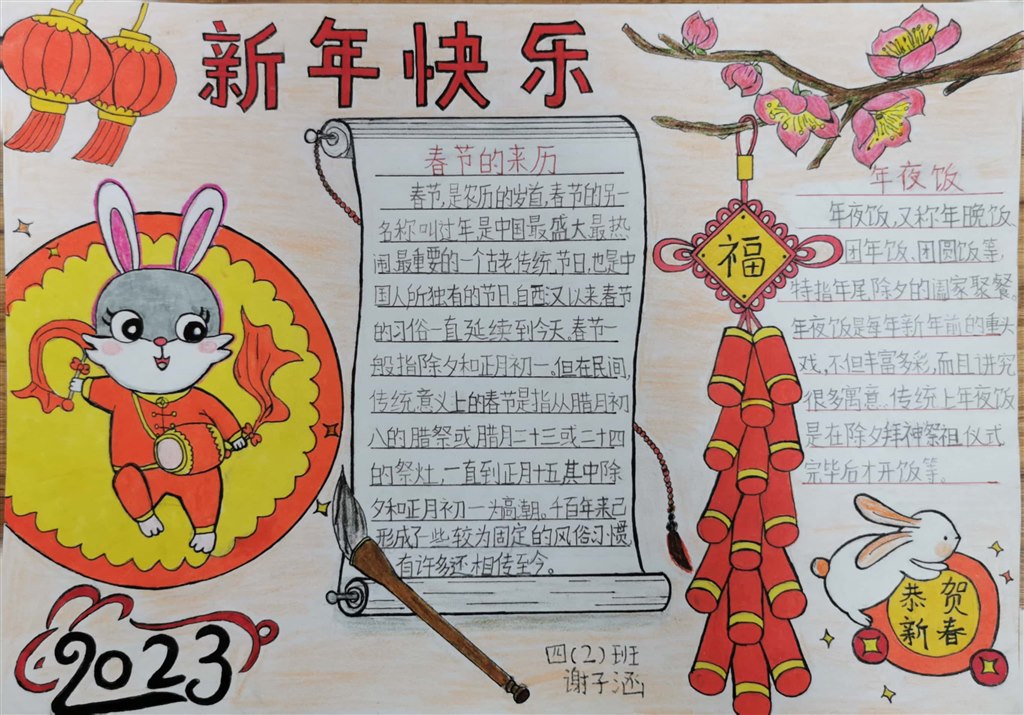 新年快乐
春节的来历
春节,是农历的岁首,春节的另一
名称叫过年是中国最盛大最热
闹最重要的一个古老传统节日,也是中
国人所独有的节日。自西汉以来春节
的习俗一直延续到今天。春节一
般指除夕和正月初一。但在民间,
传统意义上的春节是指从腊月初
八的腊祭或腊月二十三或二十四
的祭灶,一直到正月十五,其中除
夕和正月初一为高潮。千百年来已
形成了一些较为固定的风俗习惯,
有许多还相传至今。
年夜饭
年夜饭,又称年晚饭、
团年饭、团圆饭等,
特指年尾除夕的阖家聚餐。
年夜饭是每年新年前的重头
戏,不但丰富多彩,而且讲究
很多寓意。传统上年夜饭
是在除夕拜神祭祖仪式
完毕后才开饭等。
福
恭贺
新春
2023
四(2)班
谢子涵